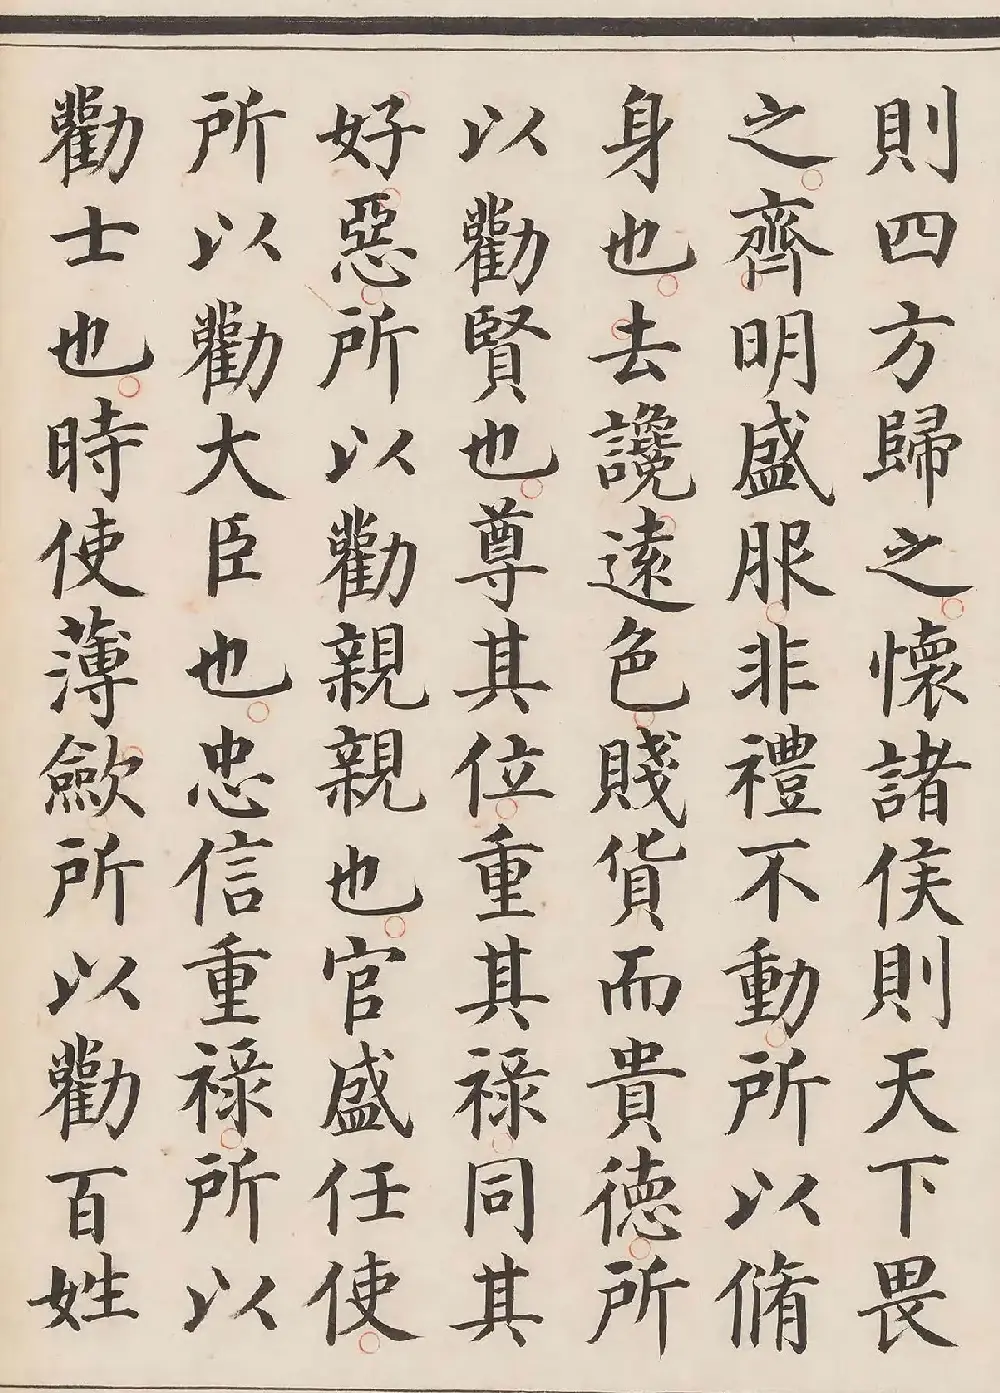 則四方歸之懷諸侯則天下畏
之齊明盛服非禮不動所以脩
身也去讒遠色賤貨而貴德所
以勸賢也尊其位重其祿同其
好惡所以勸親親也官盛任使
所以勸大臣也忠信重祿所以
勸士也時使薄歛所以勸百姓